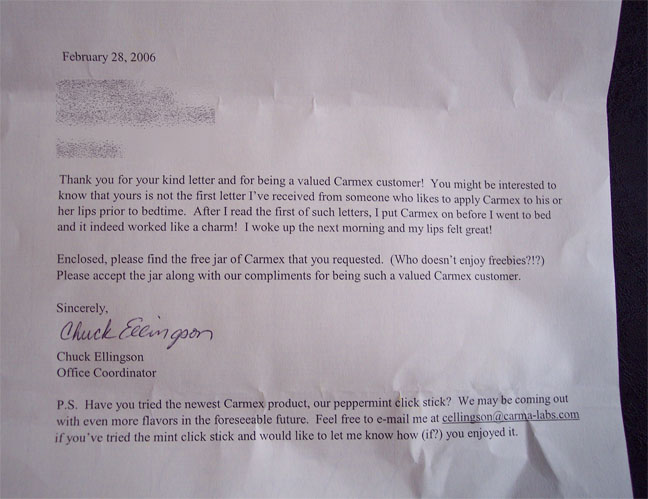 February 28, 2006
Thank you for your kind letter and for being a valued Carmex customer!  You might be interested to
know that yours is not the first letter I've received from someone who likes to apply Carmex to his or
her lips prior to bedtime.  After I read the first of such letters, I put Carmex on before I went to bed
and it indeed worked like a charm!  I woke up the next morning and my lips felt great!
Enclosed, please find the free jar of Carmex that you requested.  (Who doesn't enjoy freebies?!?)
Please accept the jar along with our compliments for being such a valued Carmex customer.
Sincerely,
Chuck Ellingson
Chuck Ellingson
Office Coordinator
P.S.  Have you tried the newest Carmex product, our peppermint click stick?  We may be coming out
with even more flavors in the foreseeable future.  Feel free to e-mail me at cellingson@carma-labs.com
if you've tried the mint click stick and would like to let me know how (if?) you enjoyed it.